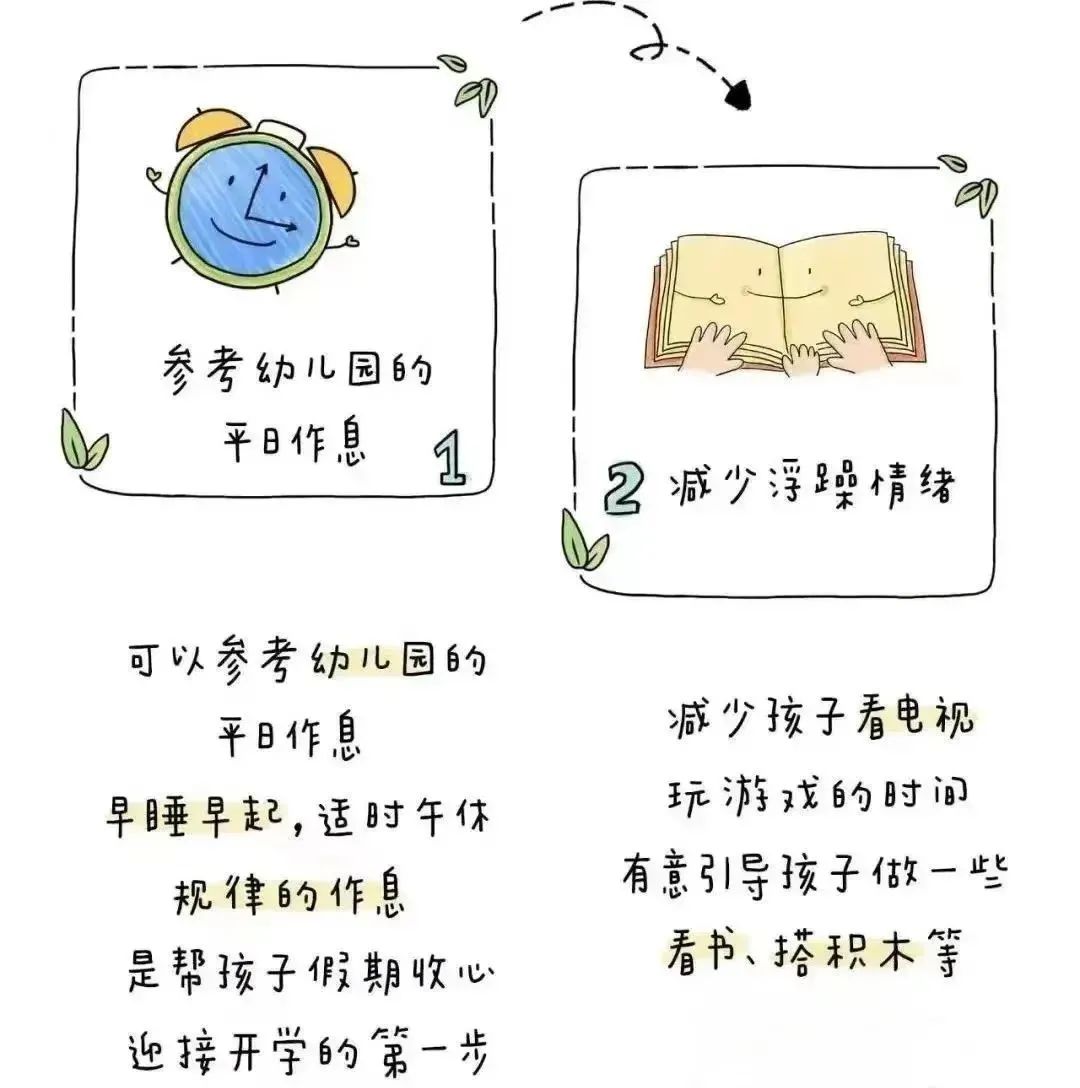 参考幼儿园的
平日作息
1
2
减少浮躁情绪
可以参考幼儿园的
平日作息
早睡早起,适时午休
规律的作息
是帮孩子假期收心
迎接开学的第一步
减少孩子看电视
玩游戏的时间
有意引导孩子做一些
看书、搭积木等